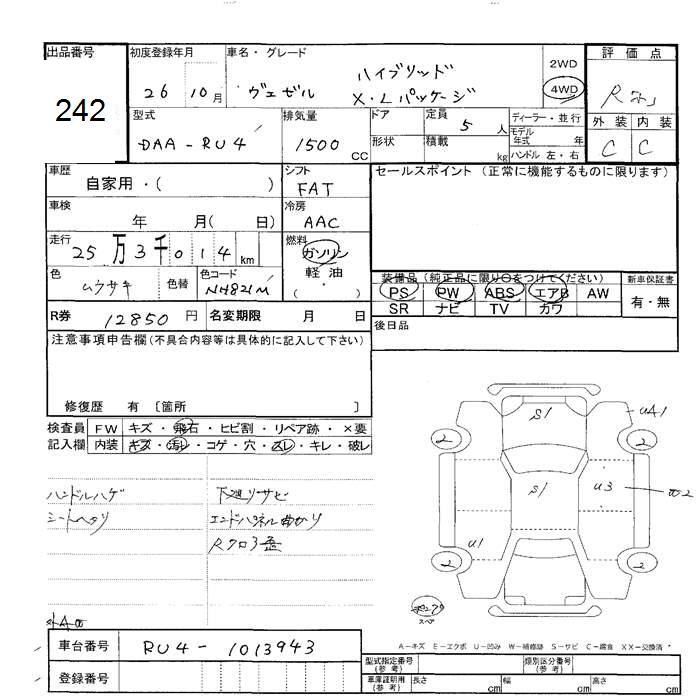 出品番号
242
初度登録年月
26 10月
車名・グレード
ヴェゼル
ハイブリッド
X・Lパッケージ
2WD
4WD
評価点
外装 内装
C C
型式
DAA-RU4
排気量
1500 CC
ドア
形状
定員 5人
積載 kg
ディーラー・並行
モデル年式 年
ハンドル 左・右
車歴
自家用・( )
シフト
FAT
セールスポイント (正常に機能するものに限ります)
車検
年 月( 日)
冷房
AAC
走行
25万3千014km
燃料
ガソリン
軽油
( ・ )
色
ムラサキ
色替
色コード
NH821M
装備品(純正品に限り○をつけてください)
PS PW ABS エアB AW
SR ナビ TV カワ
新車保証書
有・無
R券 12850円
名変期限 月 日
後日品
注意事項申告欄(不具合内容等は具体的に記入して下さい)
修復歴 有 〔箇所 〕
検査員記入欄
FW キズ・飛石・ヒビ割・リペア跡・×要
内装 キズ・汚レ・コゲ・穴・スレ・キレ・破レ
ハンドルハゲ
シートヘタリ
下廻りサビ
エンドパネル曲がり
S1
UA1
2
2
S1
U3
U1
2
2
スペア
A-キズ E-エクボ U-凹み W-補修跡 S-サビ C-腐食 XX-交換済
車台番号 RU4-1013943
登録番号
型式指定番号(参考)
類別区分番号(参考)
車庫証明用(参考)
長さ cm 幅 cm 高さ cm